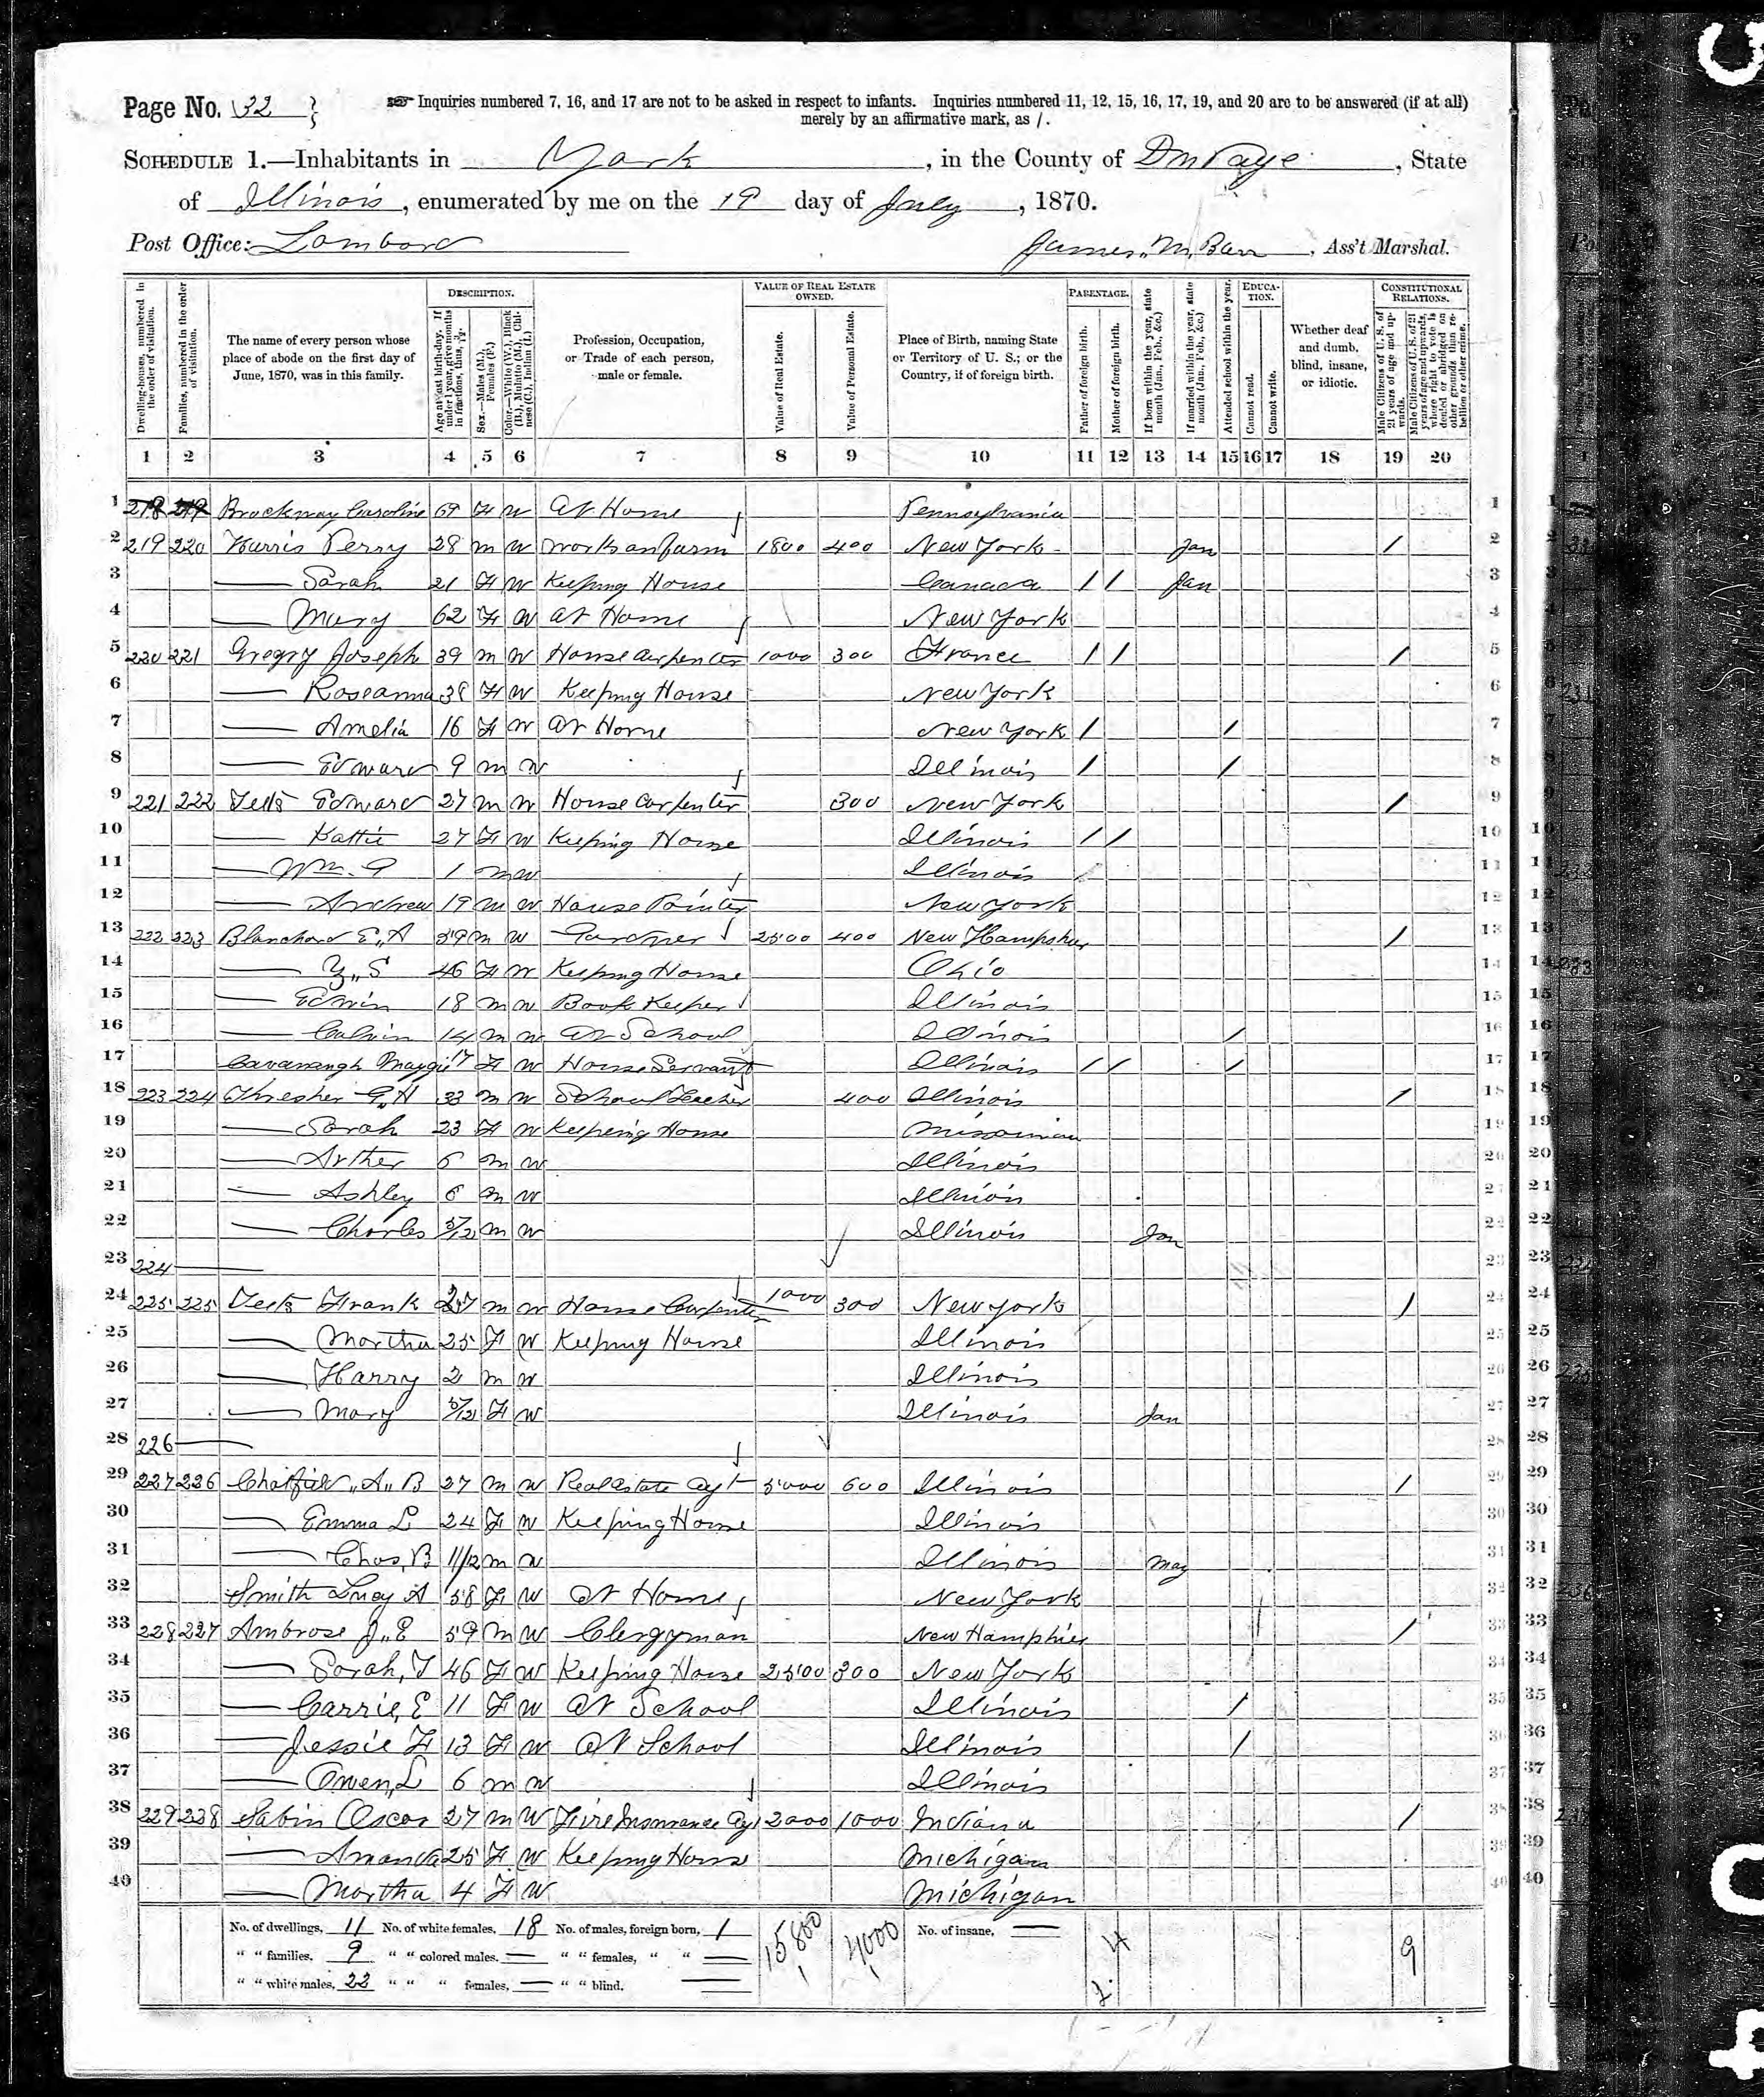 Page No. 32
Inquiries numbered 7, 16, and 17 are not to be asked in respect to infants. Inquiries numbered 11, 12, 15, 16, 17, 19, and 20 are to be answered (if at all)
merely by an affirmative mark, as /.
SCHEDULE 1.—Inhabitants in York, in the County of DuPage, State
of Illinois, enumerated by me on the 19 day of July, 1870.
Post Office: Lombard James,, M, Barr, Ass't Marshal.
DESCRIPTION. VALUE OF REAL ESTATE OWNED. PARENTAGE. EDUCATION. CONSTITUTIONAL RELATIONS.
Dwelling-houses, numbered in the order of visitation.
Families, numbered in the order of visitation.
The name of every person whose place of abode on the first day of June, 1870, was in this family.
Age at last birth-day. If under 1 year, give months in fractions, thus, 3/12.
Sex.—Males (M.), Females (F.)
Color.—White (W.), Black (B.), Mulatto (M.), Chinese (C.), Indian (I.)
Profession, Occupation, or Trade of each person, male or female.
Value of Real Estate.
Value of Personal Estate.
Place of Birth, naming State or Territory of U. S.; or the Country, if of foreign birth.
Father of foreign birth.
Mother of foreign birth.
If born within the year, state month (Jan., Feb., &c.)
If married within the year, state month (Jan., Feb., &c.)
Attended school within the year.
Cannot read.
Cannot write.
Whether deaf and dumb, blind, insane, or idiotic.
Male Citizens of U. S. of 21 years of age and upwards.
Male Citizens of U. S. of 21 years of age and upwards, where right to vote is denied or abridged on other grounds than rebellion or other crime.
1 2 3 4 5 6 7 8 9 10 11 12 13 14 15 16 17 18 19 20
1 218 219 Brockway Caroline 69 F W At Home Pennsylvania 1
2 219 220 Harris Perry 28 m W works on farm 1800 400 New York Jan / 2
3 — Sarah 21 F W Keeping House Canada / / Jan 3
4 — Mary 62 F W At Home New York 4
5 220 221 Gregry Joseph 39 m W House Carpenter 1000 300 France / / / 5
6 — Roseanna 38 F W Keeping House New York 6
7 — Amelia 16 F W At Home New York / / 7
8 — Edward 9 m W Illinois / / 8
9 221 222 Edward 27 m W House Carpenter 300 New York / 9
10 — Hattie 27 F W Keeping House Illinois / / 10
11 — Wm. 1 m W Illinois 11
12 — Andrew 19 m W House Painter New York 12
13 222 223 Blanchard E,, A 59 m W Gardner 2500 400 New Hampshire / 13
14 — 46 F W Keeping House Ohio 14
15 — Edwin 18 m W Book Keeper Illinois 15
16 — Calvin 14 m W At School Illinois / 16
17 Cavanaugh Maggie 17 F W House Servant Illinois / / / 17
18 223 224 Thresher G,, H 33 m W School Teacher 400 Illinois / 18
19 — Sarah 23 F W Keeping House 19
20 — Arther 6 m W Illinois 20
21 — Ashley 6 m W Illinois 21
22 — Charles 5/12 m W Illinois Jan 22
23 224 — 23
24 225 225 Frank 27 m W House Carpenter 1000 300 New York / 24
25 — Martha 25 F W Keeping House Illinois 25
26 — Harry 2 m W Illinois 26
27 — Mary 5/12 F W Illinois Jan 27
28 226 — 28
29 227 226 A,, B 27 m W Real Estate Agt 5000 600 Illinois / 29
30 — Emma L 24 F W Keeping House Illinois 30
31 — Chas, B 11/12 m W Illinois May 31
32 Smith Lucy A 58 F W At Home New York 32
33 228 227 Ambrose J,, E 59 m W Clergyman New Hamphier / 33
34 — Sarah, 46 F W Keeping House 2500 300 New York 34
35 — Carrie, E 11 F W At School Illinois / 35
36 — Jessie F 13 F W At School Illinois / 36
37 — Owen, L 6 m W Illinois 37
38 229 228 Sabin Oscar 27 m W Fire Insurance Agt 2000 1000 Indiana / 38
39 — Amanda 25 F W Keeping House Michigan 39
40 — Martha 4 F W Michigan 40
No. of dwellings, 11 No. of white females, 18 No. of males, foreign born, 1 15,800 4000 No. of insane, — 4 9
" " families, 9 " " colored males, — " " females, " " —
" " white males, 22 " " " females, — " " blind, —